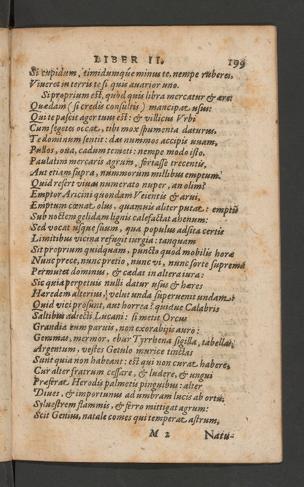 LIBER II. 199
Si cupidum, timidumque minus te, nempe ruberes,
Viueret in terris te si quis auarior uno.
Si proprium est, quod quis libra mercatur & ære:
Quædam (si credis consultis) mancipat usus:
Qui te pascit ager tuus est: & uillicus Vrbi
Cum segetes occat, tibi mox frumenta daturus,
Te dominum sentit: das nummos accipis uuam,
Pullos, oua, cadum temeti: nempe modo isto.
Paulatim mercaris agrum, fortasse trecentis,
Aut etiam supra, nummorum millibus emptum.
Quid refert viuas numerato nuper, an olim?
Emptor Aricini quondam Veientis & arui,
Emptum cœnat olus, quamuis aliter putat: emptis
Sub noctem gelidam lignis calefactat ahenum:
Sed vocat usque suum, qua populus adsita certis
Limitibus vicina refugit iurgia: tanquam
Sit proprium quidquam, puncto quod mobilis horæ
Nunc prece, nunc pretio, nunc vi, nunc sorte suprema
Permutet dominus, & cedat in altera iura:
Sic quia perpetuus nulli datur usus & hæres
Hæredem alterius, velut unda superuenit undam:
Quid vici prosunt, aut horrea? quidue Calabris
Saltibus adiecti Lucani: si metit Orcus
Grandia cum paruis, non exorabilis auro:
Gemmas, mermor, ebur Tyrrhena sigilla, tabellas,
Argentum, vestes Getulo murice tinctas
Sunt qui non habeant: est qui non curat habere.
Cur alter fratrum cessare, & ludere, & ungui
Præferat Herodis palmetis pinguibus: alter
Diues, & importunus ad umbram lucis ab ortu,
Syluestrem flammis, & ferro mittigat agrum:
Scit Genius, natale comes qui temperat astrum,
M 2 Natu-